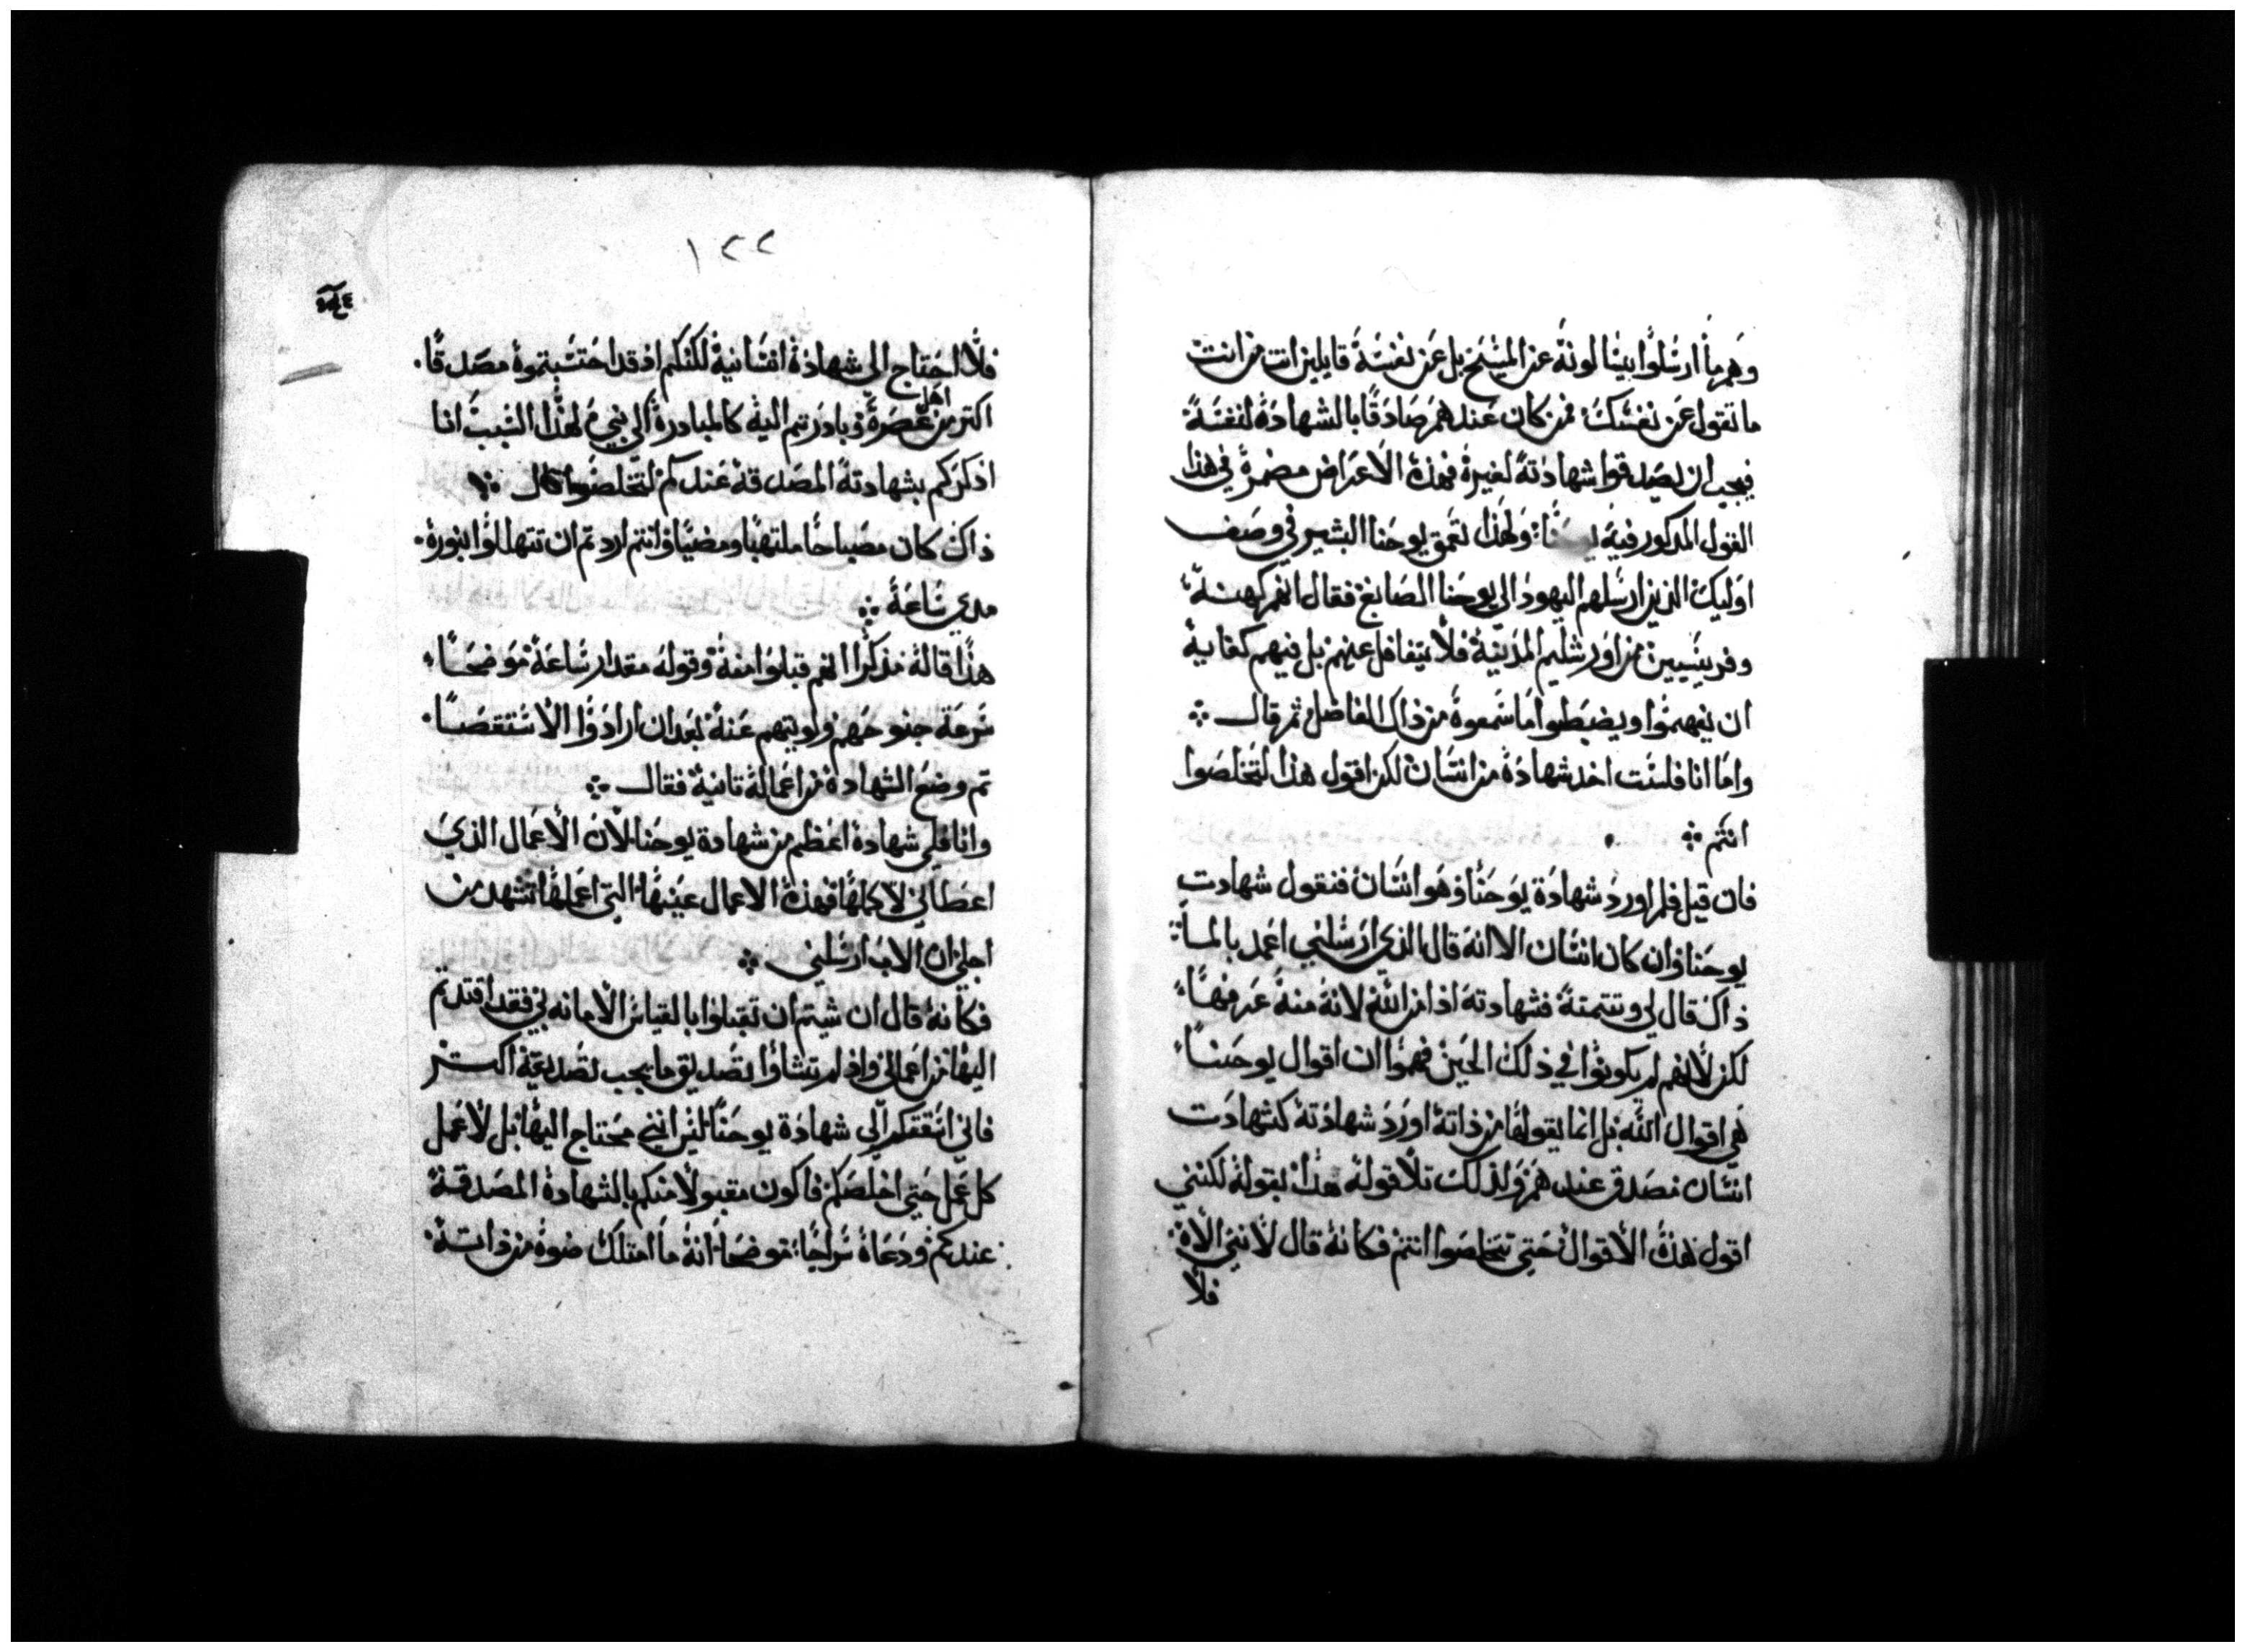 وهم ما ارسلوا يسالونه عن المسيح بل عن نفسه قايلين انت من انت
ما تقول عن نفسك فمن كان عندهم صادقا بالشهادة لنفسه
فيجب ان يصدقوا شهادته لغيره فهذه الاعراض مضمرة في هذا
القول المذكور فيه ولهذا تعمق يوحنا البشير في وصف
اوليك الذين ارسلهم اليهود الي يوحنا الصابغ فقال انهم كهنه
وفريسيين من اورشليم المدينة فلا يتغافل عنهم بل فيهم كفاية
ان يفهموا ويضبطوا ما سمعوه من ذاك الفاضل ثم قال
واما انا فلست اخد شهادة من انسان لكن اقول هذا لتخلصوا
انتم
فان قيل فلم اورد شهادة يوحنا وهو انسان فنقول شهادت
يوحنا وان كان انسان الا انه قال الذي ارسلني اعمد بالما
ذاك قال لي وتتمته فشهادته اذا من الله لانه منه عرفها
لكن لانهم لم يكونوا في ذلك الحين فهموا ان اقوال يوحنا
هي اقوال الله بل انما يقولها من ذاته اورد شهادته كشهادت
انسان مصدق عندهم ولذلك تلا قوله هذا بقوله لكنني
اقول هذه الاقوال حتي تخلصوا انتم فكانه قال لانني الاه
فلا
١٢٢
فلا احتاج الي شهادة انسانية لكنكم اذ قد احتسبتموه مصدقا
اهل
اكتر من عصره وبادرتم اليه كالمبادرة الي نبي لهذا السبب انا
اذكركم بشهادته المصدقه عندكم لتخلصوا قال
ذاك كان مصباحا ملتهبا ومضيا وانتم اردتم ان تتهللوا بنوره
مدي ساعة
هذا قاله مذكرا انهم قبلوا منه وقوله مقدار ساعة موضحا
سرعة جنوحهم ولويتهم عنه بعد ان ارادوا الاستقصا
تم وضع الشهادة من اعماله تانية فقال
وانا فلي شهادة اعظم من شهادة يوحنا لان الاعمال الذي
اعطاني لاكملها فهذه الاعمال عينها التي اعملها تشهد من
اجلي ان الاب ارسلني
فكانه قال ان شيتم ان تقبلوا بالقياس الامانه بي فقد اقتدتم
اليها من اعمالي واذ لم تشاوا تصديق ما يجب تصديقه اكتر
فاني اسقتكم الي شهادة يوحنا ليس انني محتاج اليها بل لاعمل
كل عمل حتي اخلصكم فاكون مقبولا منكم بالشهادة المصدقة
عندكم ودعاه سراجا موضحا انه ما امتلك ضوه من ذاته